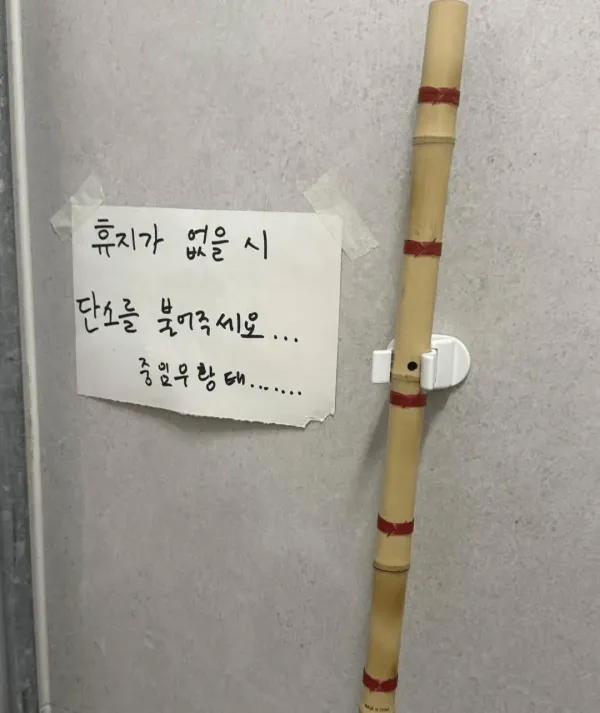 휴지가 없을 시
단소를 불어주세요...
중임무황태.......